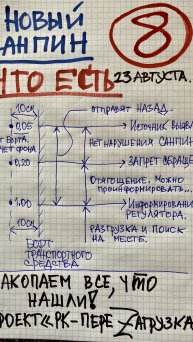 НОВЫЙ
АНПИН
8
ЧТО ЕСТЬ
23 АВГУСТА.
10см
ОТПРАВЯТ НАЗАД.
0,05
ИСТОЧНИК ВЫЯВЛ
НЕТ НАРУШЕНИЯ САНПИН
0,20
ЗАПРЕТ ОБРАЩЕ
ОТЯГОЩЕНИЕ. МОЖНО
ПРОИНФОРМИРОВАТЬ...
1.00
ИНФОРМИРОВАНИ
РЕГУЛЯТОРА.
10см
РАЗГРУЗКА И ПОИСК
НА МЕСТЕ.
БОРТ
ТРАНСПОРТНОГО
СРЕДСТВА
АКОПАЕМ ВСЕ, ЧТО
НАШЛИ!
РОЕКТ«РК-ПЕРЕZАГРУЗКА